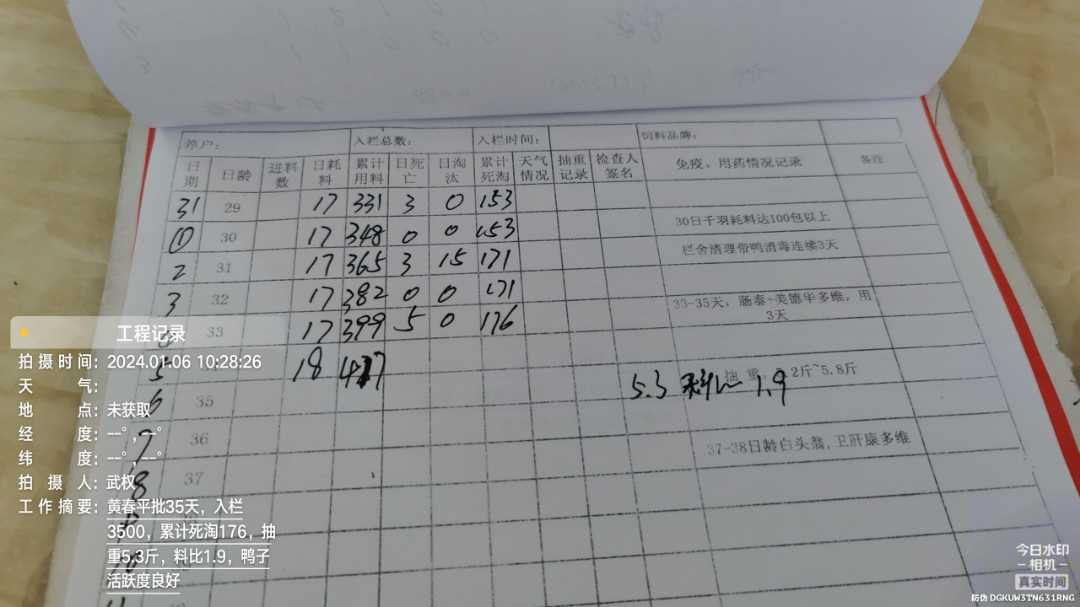 养户： 入栏总数： 入栏时间： 饲料品牌：
日期 日龄 进料数 日耗料 累计用料 日死亡 日淘汰 累计死淘 天气情况 抽重记录 检查人签名 免疫、用药情况记录 备注
31 29 17 331 3 0 153
① 30 17 348 0 0 153 30日千羽耗料达100包以上
2 31 17 365 3 15 171 栏舍清理带鸭消毒连续3天
3 32 17 382 0 0 171
33 17 399 5 0 176 33-35天，肠泰+美德华多维，用3天
5 18 417 2斤~5.8斤
5.3 料比 1.9
6 35
7 36 37-38日龄白头翁，卫肝康多维
8 37
9
10
工程记录
拍摄时间：2024.01.06 10:28:26
天气：
地点：未获取
经度：--°,--°
纬度：--°,--°
拍摄人：武权
工作摘要：黄春平批35天，入栏
3500，累计死淘176，抽
重5.3斤，料比1.9，鸭子
活跃度良好
今日水印
相机
真实时间
防伪 DGKUW3TN631RNG